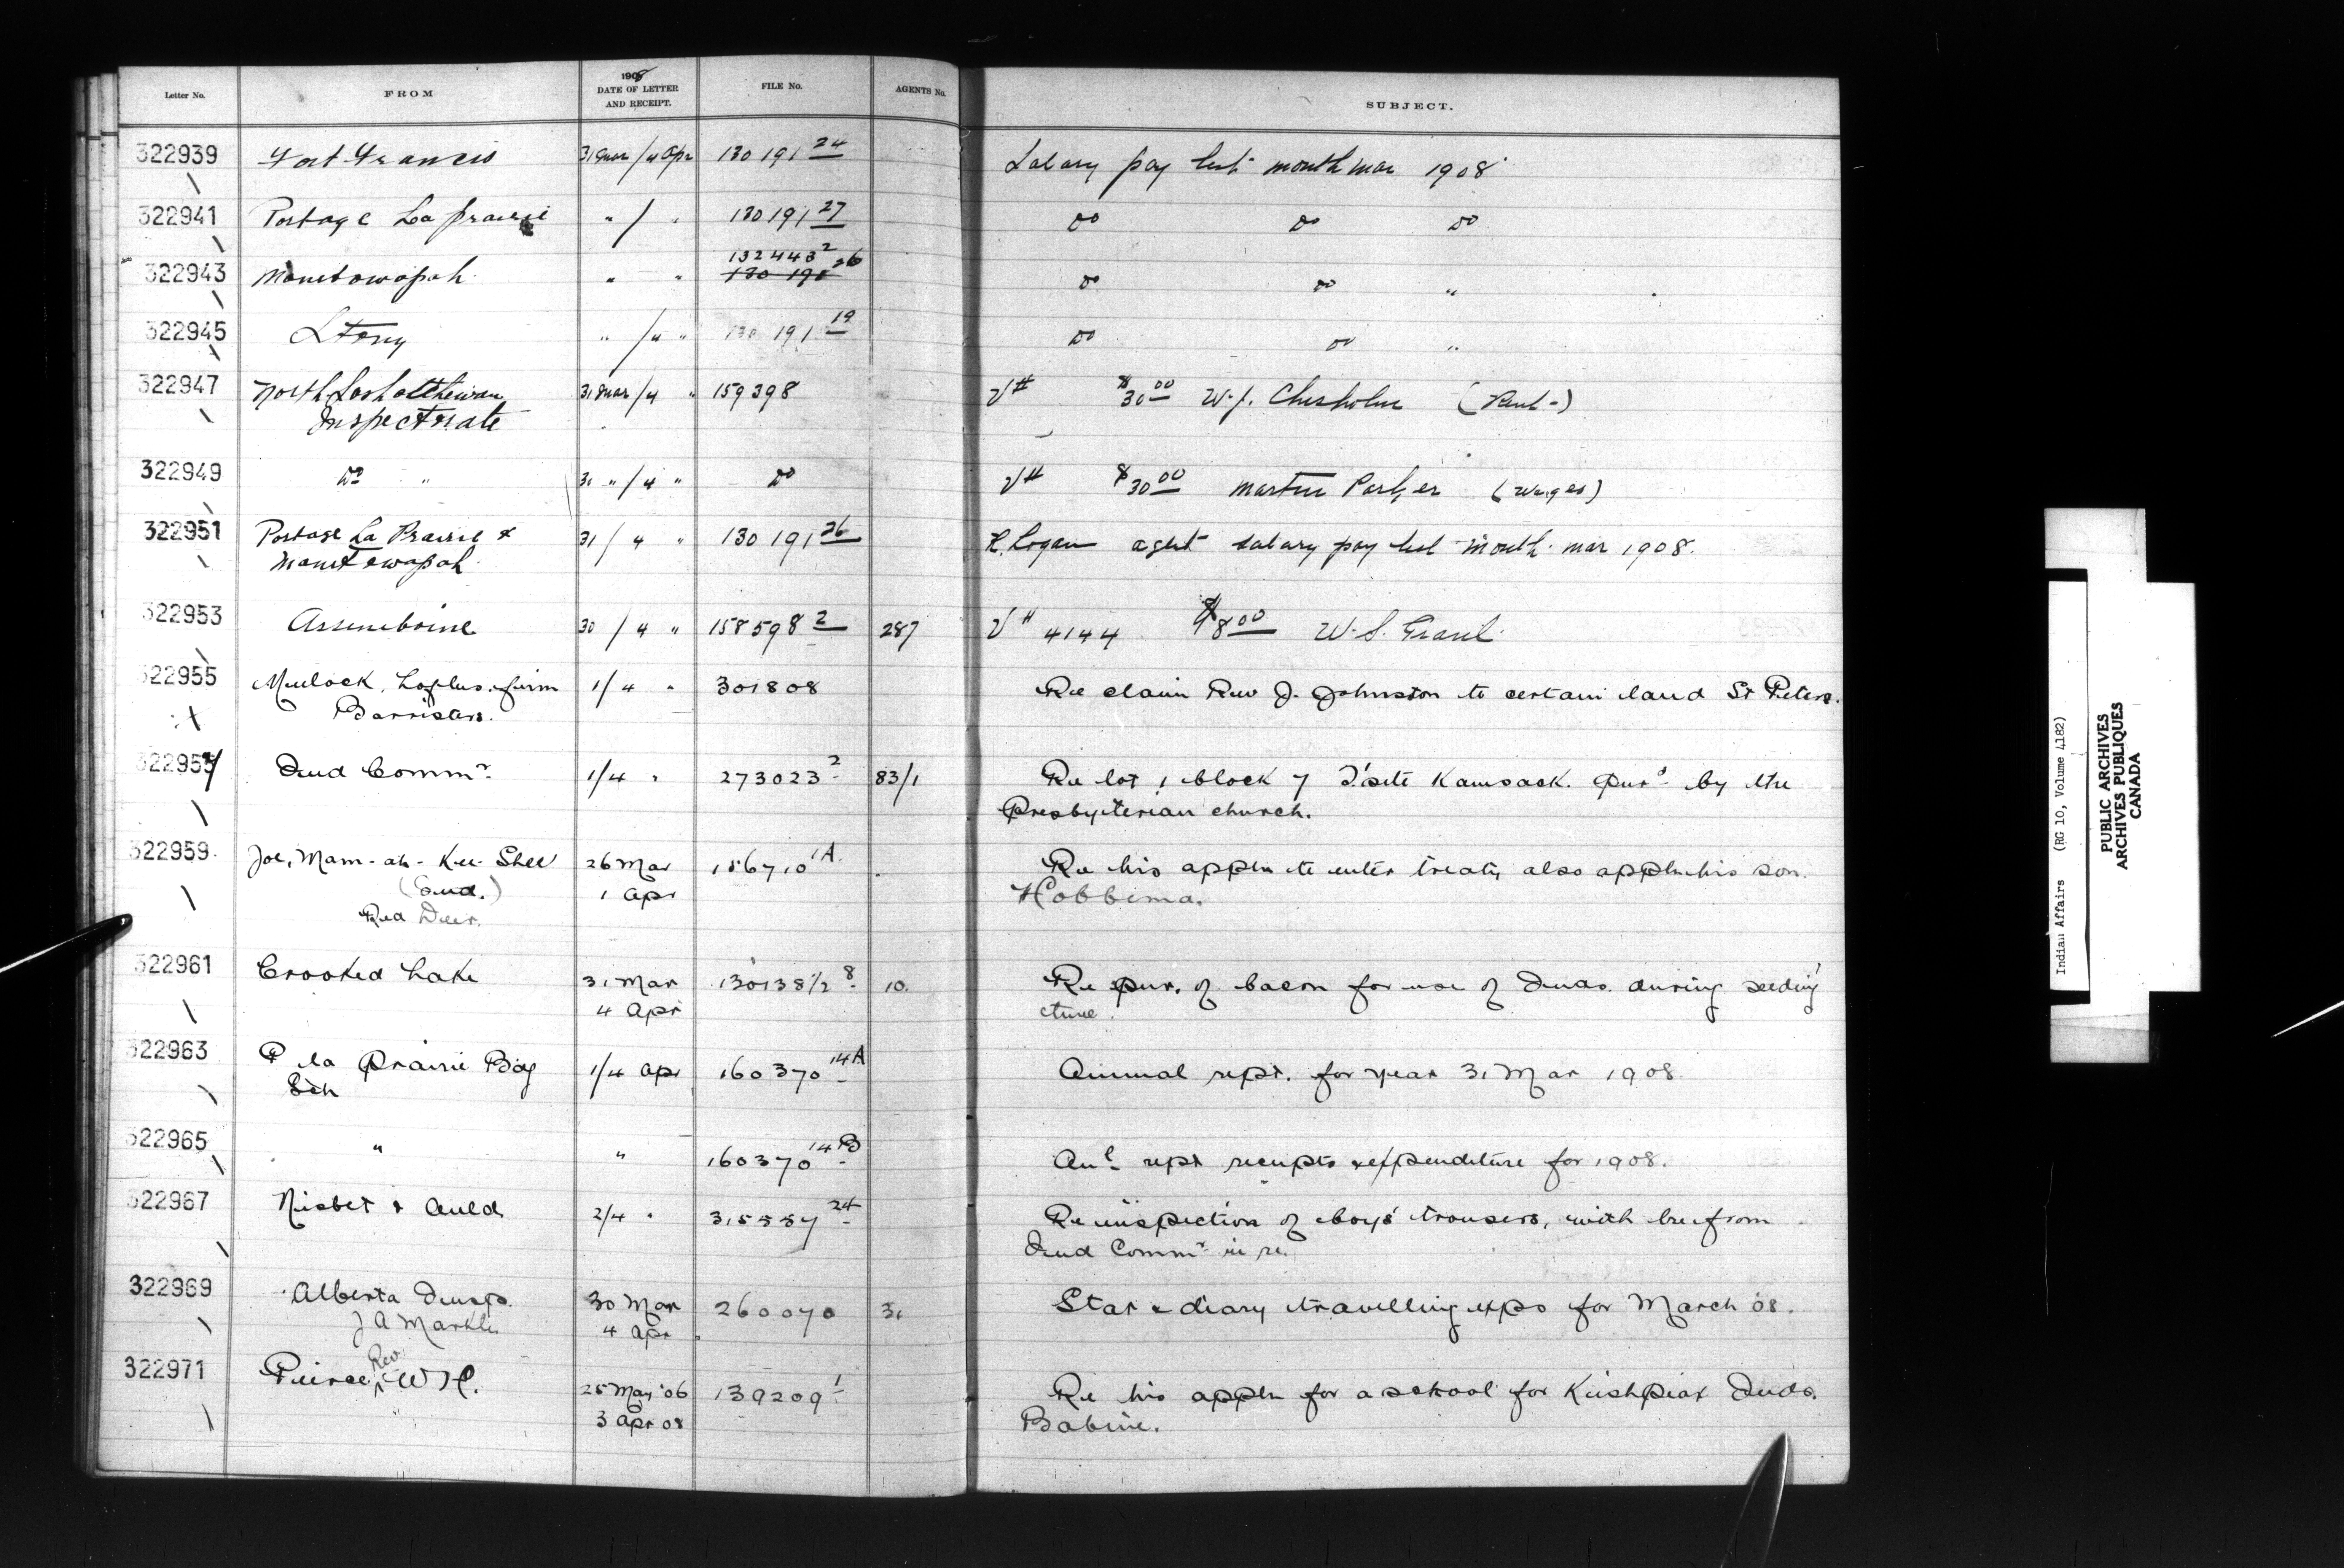 1908
Letter No. FROM DATE OF LETTER AND RECEIPT. FILE No. AGENTS No. SUBJECT.
322939 Fort Francis 31 Mar/4 Apr 130191 24 Salary pay list month Mar 1908
322941 Portage La Prairie " / " 130191 27 Do Do Do
322943 Manitowapah " " 132443 2 130 191 26 Do Do "
322945 Stony " /4 " 130191 19 Do Do "
322947 North Saskatchewan 31 Mar/4 " 159398 V# $30 00 W. J. Chisholm (Rent)
Inspectorate
322949 Do " 31 " /4 " Do V# $30 00 Martin Parker (Wages)
322951 Portage La Prairie & 31 / 4 " 130191 26 R. Logan agent salary pay list month Mar 1908.
Manitowapah
322953 Assiniboine 30 / 4 " 158598 2 287 V# 4144 $8 00 W. S. Grant
322955 Mulock, Loftus, firm 1/4 " 301808 Re claim Rev J. Johnston to certain land St Peters.
Barristers.
322957 Ind Commr. 1/4 " 273023 2 83/1 Re lot 1 block 7 T'site Kamsack. purd by the
Presbyterian church.
322959 Joe, Mam-ah-Kee-Shee 26 Mar 186710 1A Re his appln to enter treaty also appln his son.
(Ind.) 1 Apr Hobbema.
Red Deer.
322961 Crooked Lake 31 Mar 130138/2 8 10 Re pur. of bacon for use of Inds. during seeding
4 Apr time.
322963 P la Prairie Bdg 1/4 Apr 160370 14A Annual rept. for year 31 Mar 1908
Sch
322965 " " 160370 14B Anl rept receipts & expenditure for 1908.
322967 Nisbet & Auld 2/4 " 315557 24 Re inspection of boys' trousers, with
Ind Commr in re.
322969 Alberta Inspo. 30 Mar 260070 31 Stat & diary travelling exps for March 08.
J A Markle 4 Apr
322971 Peirce, Rev W H. 25 May '06 139209 1 Re his appln for a school for Kishpiax Inds.
3 Apr 08 Babine.
Indian Affairs (RG 10, Volume 4182)
PUBLIC ARCHIVES
ARCHIVES PUBLIQUES
CANADA